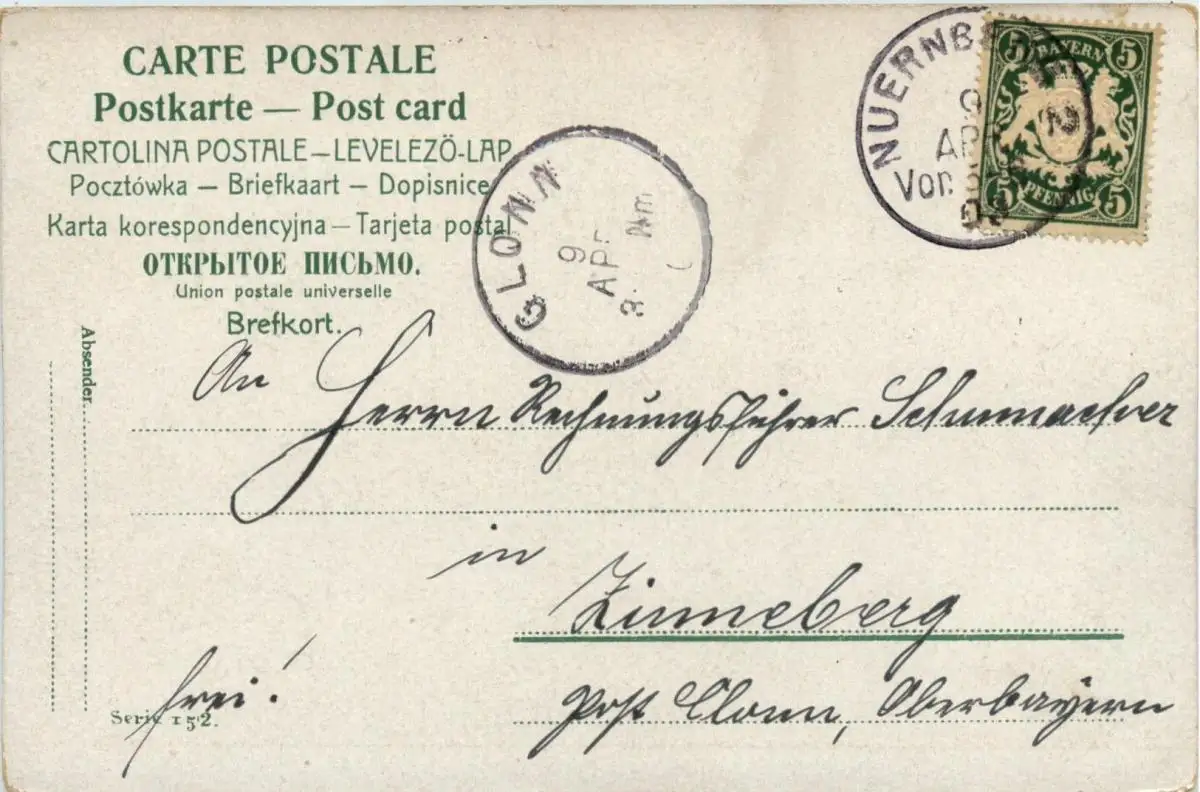 CARTE POSTALE
Postkarte — Post card
CARTOLINA POSTALE — LEVELEZÖ-LAP
Pocztówka — Briefkaart — Dopisnice
Karta korespondencyjna — Tarjeta postal
ОТКРЫТОЕ ПИСЬМО.
Union postale universelle
Brefkort.
NUERNBE
9
APR
Vor.
2
5 BAYERN 5
5 PFENNIG 5
GLONN
9
APR
Nm
Absender
An
Herrn Rechnungsführer Schumacher
in
Zinneberg
frei!
Post Glonn, Oberbayern
Serie 152.